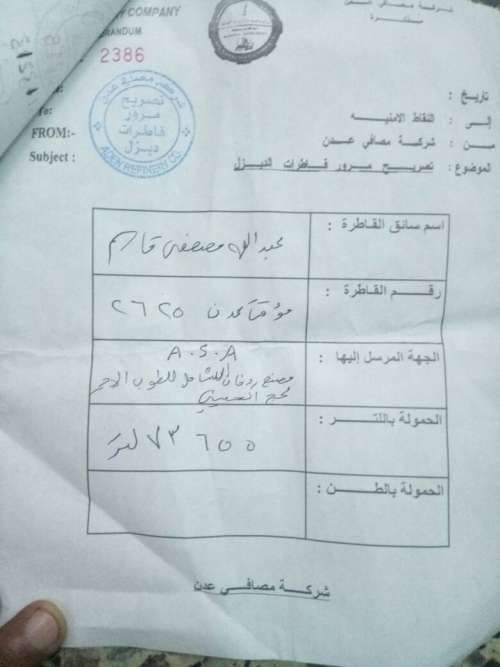 COMPANY
شركة مصافي عدن
مذكرة
2386
تاريخ :
إلى : النقاط الامنيه
FROM:-
من : شركة مصافي عدن
Subject :
الموضوع : تصريح مرور قاطرات الديزل
شركة مصافي عدن
تصريح
مرور
قاطرات
ديزل
ADEN REFINERY CO.
اسم سائق القاطرة :
عبدالله مصطفى قاسم
رقم القاطرة :
مؤقت عدن ٢٦٢٥
الجهة المرسل إليها :
A.S.A
مصنع ردفان الشامل للطوب الاحمر
لحج
الحمولة باللتر :
لتر
الحمولة بالطن :
شركة مصافي عدن